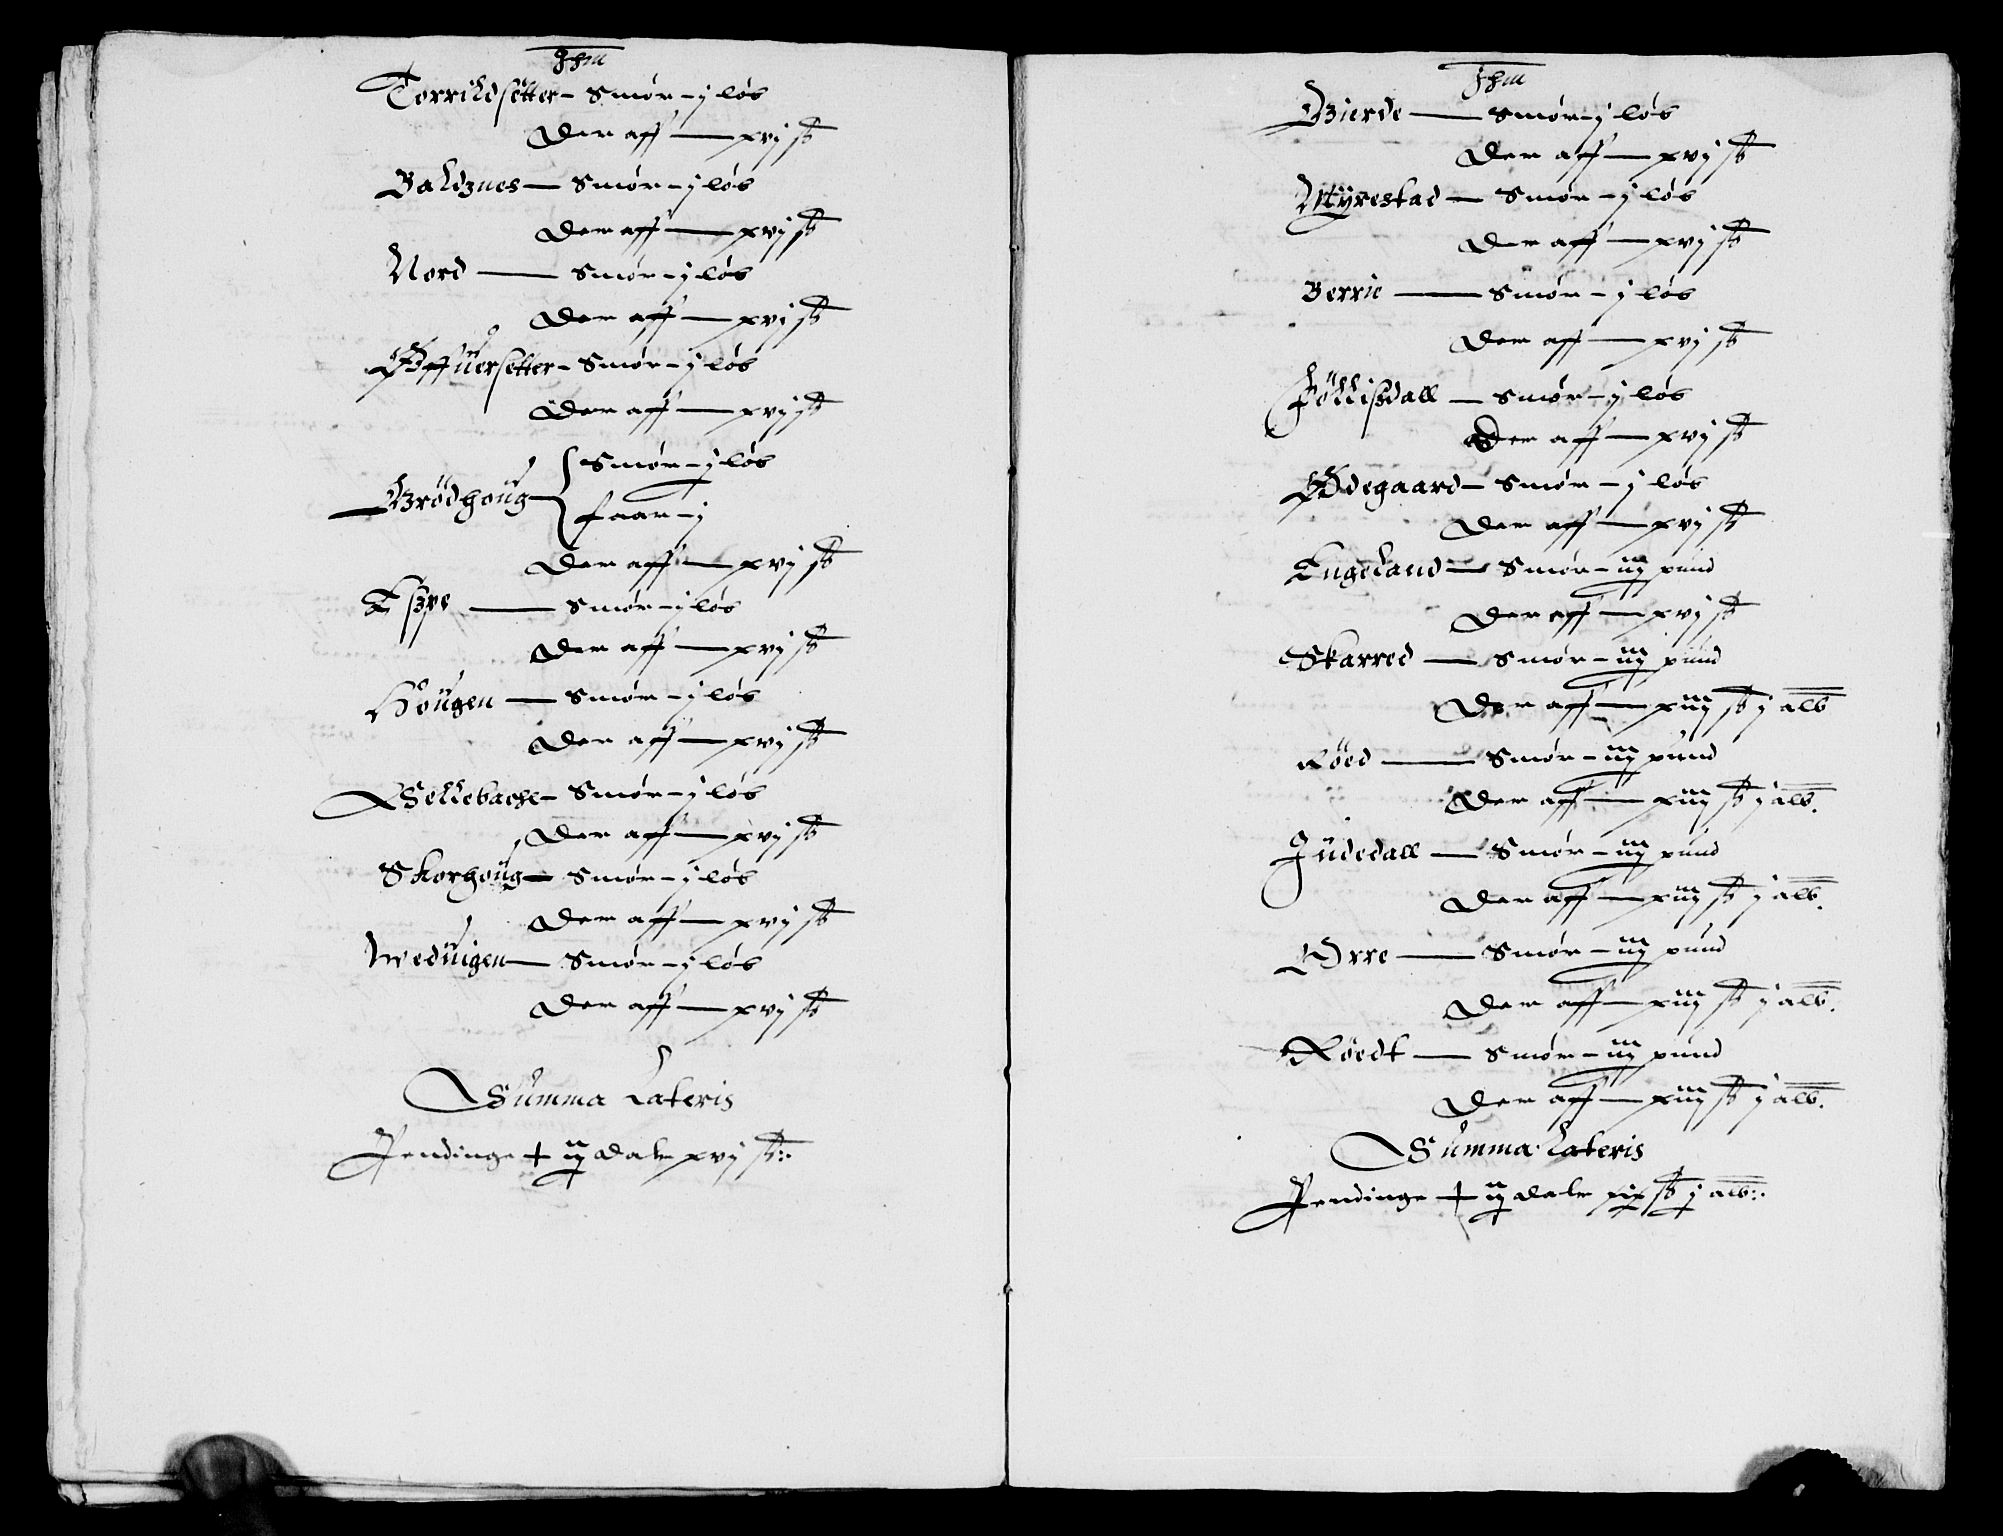 Jhm
Torrildsetter - Smør - j løb
Der aff — xvj sk
Baldznes — Smør - j løb
Der aff — xvj sk
Nord — Smør - j løb
Der aff — xvj sk
Øffuersetter - Smør - j løb
Der aff — xvj sk
Smør - j løb
Brödhoug
faar - j
Der aff — xvj sk
Eszpe — Smør - j løb
Der aff — xvj sk
Hougen — Smør - j løb
Der aff — xvj sk
Sellebache - Smør - j løb
Der aff — xvj sk
Skorhoug — Smør - j løb
Der aff — xvj sk
Weduigen — Smør - j løb
Der aff — xvj sk
Summa Lateris
Pendinge + ij daler xvj sk:
Jhm
Gierde — Smør - j løb
Der aff — xvj sk
Myrestad — Smør - j løb
Der aff — xvj sk
Berrie — Smør - j løb
Der aff — xvj sk
Föllisdall — Smør - j løb
Der aff — xvj sk
Ødegaard — Smør - j løb
Der aff — xvj sk
Engeland — Smør - iij pund
Der aff — xvj sk
Skarred — Smør - iij pund
Der aff — xiij sk j alb
Röed — Smør - iij pund
Der aff — xiij sk j alb.
Judedall — Smør - iij pund
Der aff — xiij sk j alb.
Orre — Smør - iij pund
Der aff — xiij sk j alb.
Röedt — Smør - iij pund
Der aff — xiij sk j alb.
Summa Lateris
Pendinge + ij daler xix sk j alb: